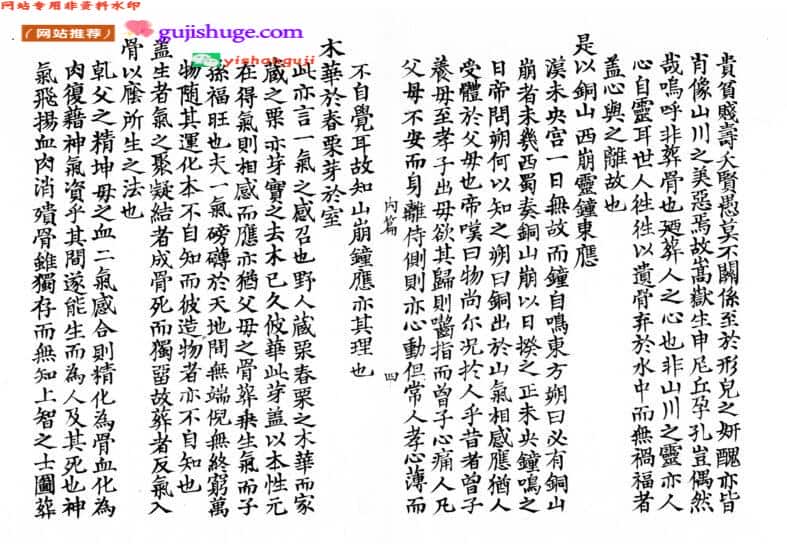 网站专用非资料水印
(网站推荐)
gujishuge.com
yishanguji
貴貧賤壽夭賢愚莫不關係至於形皃之妍醜亦皆
肖像山川之美惡焉故嵩嶽生申尼丘孕孔豈偶然
哉嗚呼非葬骨也廼葬人之心也非山川之靈亦人
心自靈耳世人徃徃以遺骨弃於水中而無禍福者
盖心與之離故也
是以銅山西崩靈鐘東應
漢未央宫一日無故而鐘自鳴東方朔曰必有銅山
崩者未幾西蜀奏銅山崩以日揆之正未央鐘鳴之
日帝問朔何以知之朔曰銅出於山氣相感應猶人
受體於父母也帝嘆曰物尚尓况於人乎昔者曾子
養母至孝子出母欲其歸則嚙指而曾子心痛人凡
父母不安而身離侍側則亦心動但常人孝心薄而
内篇
四
不自覺耳故知山崩鐘應亦其理也
木華於春栗芽於室
此亦言一氣之感召也野人藏栗春栗之木華而家
藏之栗亦芽實之去木已久彼華此芽盖以本性元
在得氣則相感而應亦猶父母之骨葬乗生氣而子
孫福旺也夫一氣磅礴於天地間無端倪無終窮萬
物隨其運化本不自知而彼造物者亦不自知也
盖生者氣之聚凝結者成骨死而獨留故葬者反氣入
骨以䕃所生之法也
乹父之精坤母之血二氣感合則精化為骨血化為
肉復藉神氣資乎其間遂能生而為人及其死也神
氣飛揚血肉消殨骨雖獨存而無知上智之士圖葬